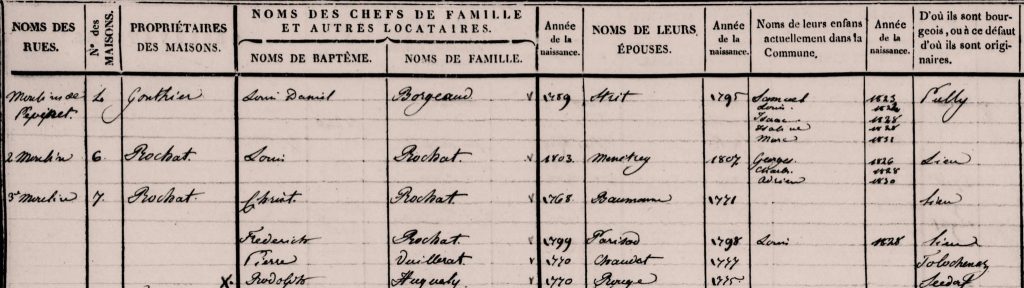 NOMS DES RUES. | Nos des MAISONS. | PROPRIÉTAIRES DES MAISONS. | NOMS DES CHEFS DE FAMILLE ET AUTRES LOCATAIRES. | Année de la naissance. | NOMS DE LEURS ÉPOUSES. | Année de la naissance. | Noms de leurs enfans actuellement dans la Commune. | Année de la naissance. | D'où ils sont bourgeois, ou à ce défaut d'où ils sont originaires.
NOMS DE BAPTÊME. | NOMS DE FAMILLE.
Moulins de | Gonthier | Louis Daniel | Borgeaud | 1789 | 1795 | Samuel | 1823 | Pully
Louis
Isaac | 1828
1828
Marc | 1831
2 Moulin | 6. | Rochat | Louis | Rochat | 1803 | Menétrey | 1807 | Georges | 1826 | Lieu
Charles | 1828
Adrien | 1830
3e Moulin | 7. | Rochat | Christ | Rochat | 1768 | Baumann | 1771 | Lieu
Frederich | Rochat | 1799 | Parisod | 1798 | Louis | 1828 | Lieu
Pierre | Vuillerat | 1770 | Chaudet | 1777 | Tolochenaz
X. Rodolph | Huguely | 1770 | Rouge | 1775